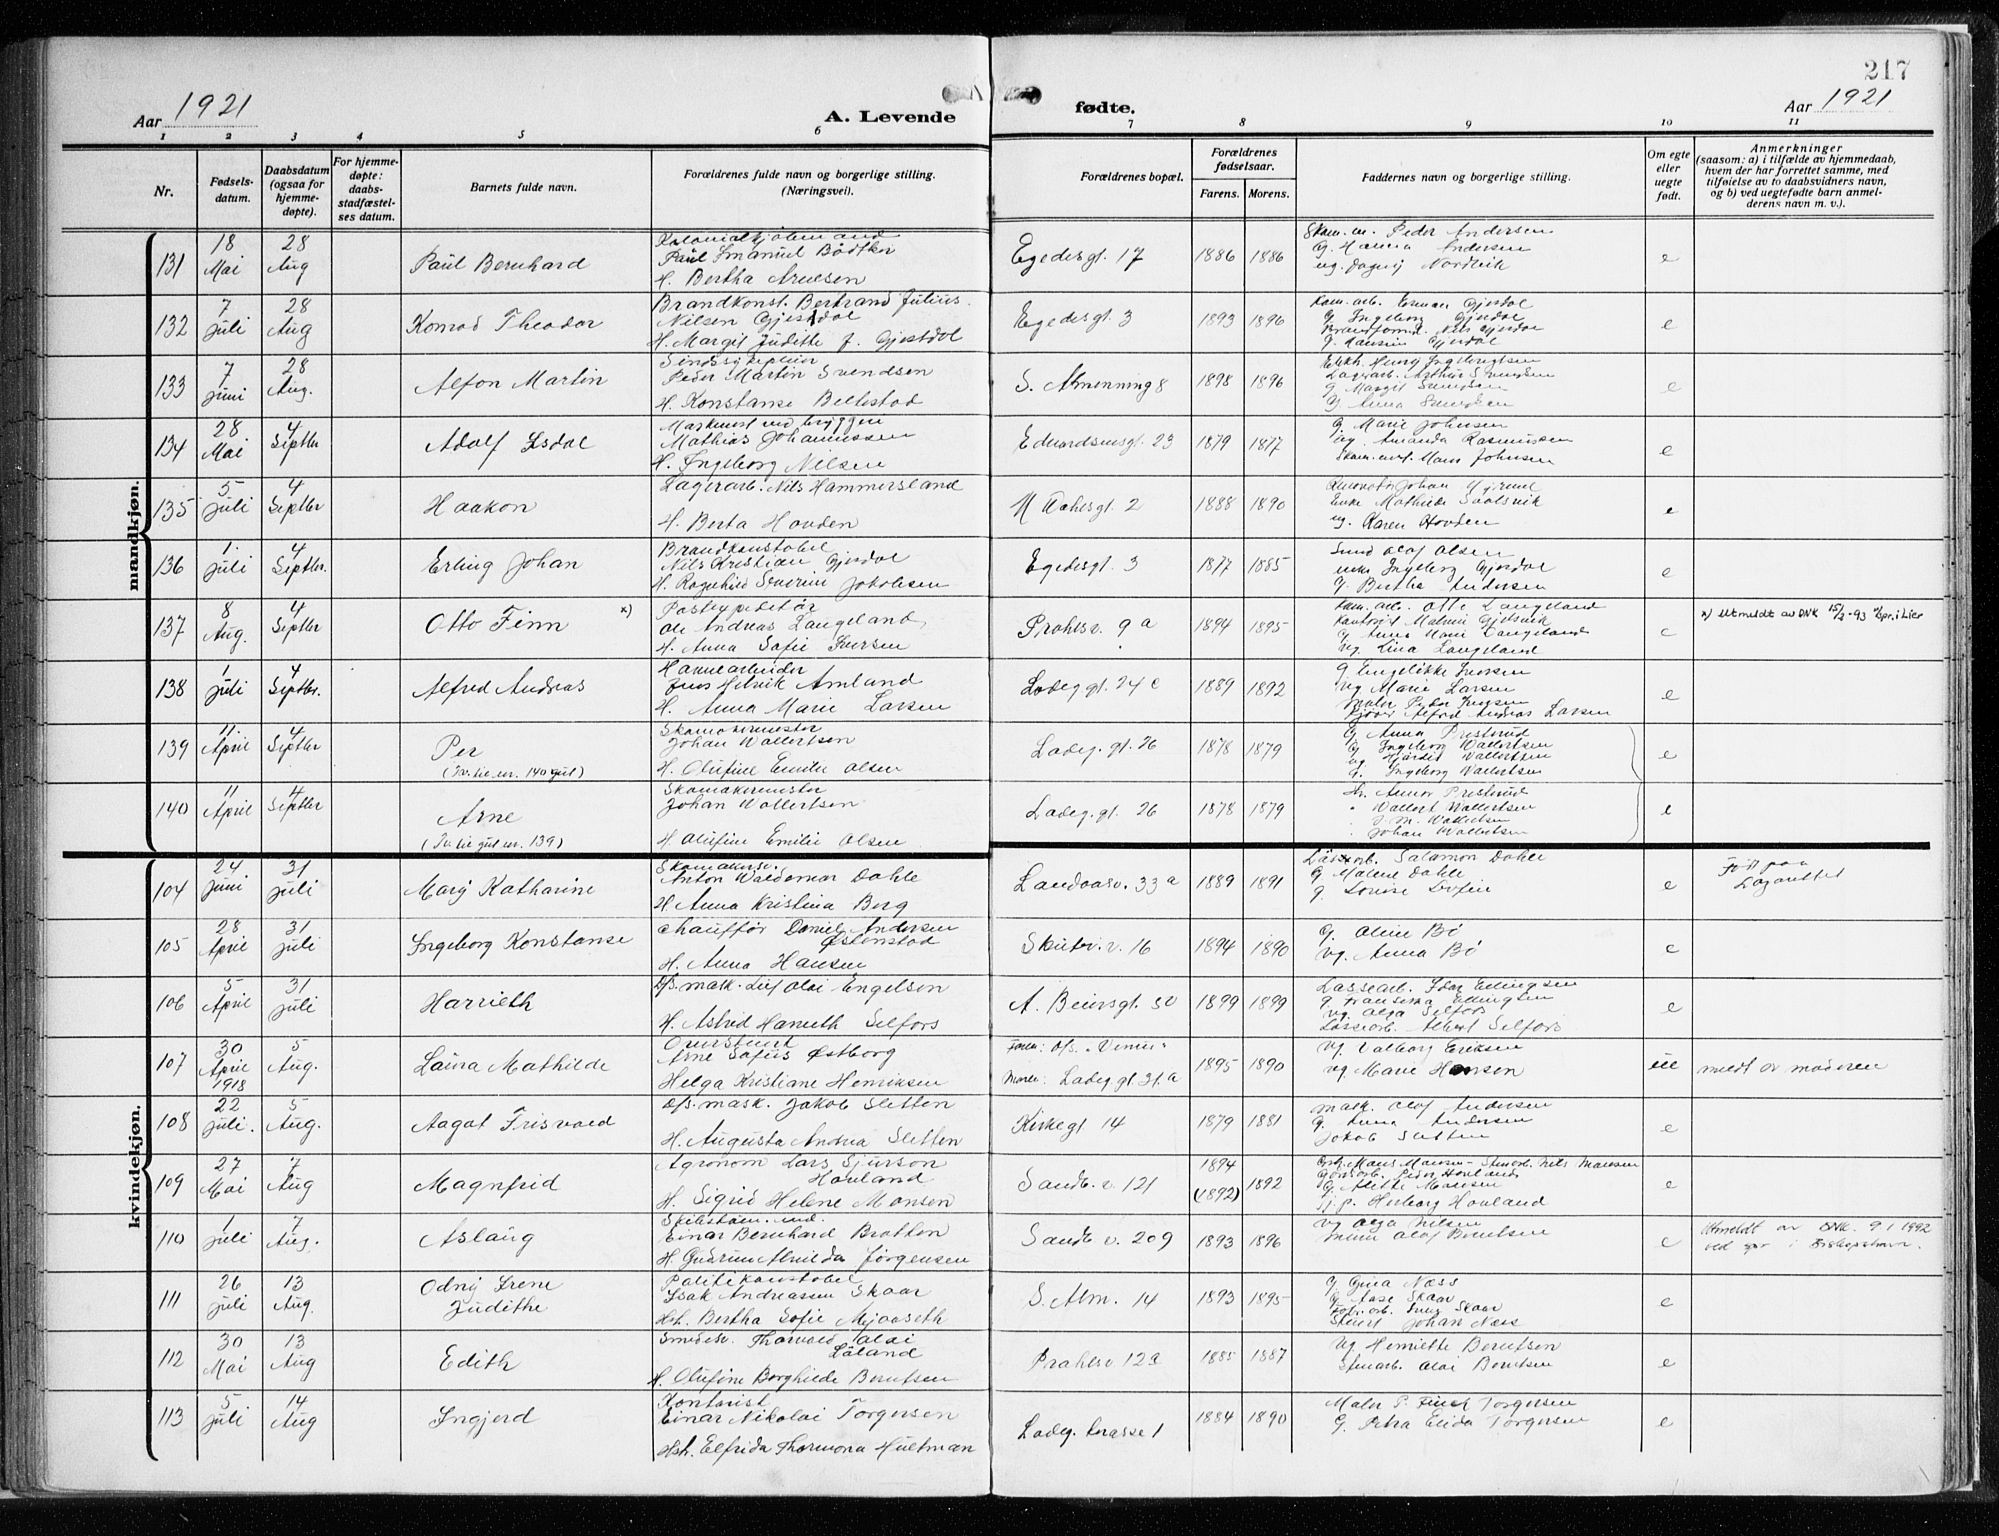 217
Aar 1921
A. Levende fødte.
Aar 1921
1 2 3 4 5 6 7 8 9 10 11
Nr.
Fødsels-
datum.
Daabsdatum
(ogsaa for
hjemme-
døpte).
For hjemme-
døpte:
daabs-
stadfæstel-
ses datum.
Barnets fulde navn.
Forældrenes fulde navn og borgerlige stilling.
(Næringsvei).
Forældrenes bopæl.
Forældrenes
fødselsaar.
Farens. Morens.
Faddernes navn og borgerlige stilling.
Om egte
eller
uegte
født.
Anmerkninger
(saasom: a) i tilfælde av hjemmedaab,
hvem der har forrettet samme, med
tilføielse av to daabsvidners navn,
og b) ved uegtefødte barn anmel-
derens navn m. v.).
mandkjøn.
131 18 Mai 28 Aug Paul Bernhard
Paul Emanuel Bødtker
H. Bertha Arnesen
Egedesgt. 17 1886 1886
Skom. m. Peder Andersen
G. Hanna Andersen
ug. Dagny Nordvik
e
132 7 Juli 28 Aug Konrad Theodor
Brandkonst. Bertrand Julius
Nilsen Gjesdal
H. Margit Judithe f. Gjesdal
Egedesgt. 3 1893 1896
G. Ingeborg Gjesdal
Brandformd. Nils Gjesdal
G. Hansine Gjesdal
e
133 7 Juni 28 Aug. Alfon Martin
Peder Martin Svendsen
H. Konstanse Bellestad
S. Almenning 8 1898 1896
G. Margit Svendsen
G. Anna Svendsen
e
134 28 Mai 4 Septbr Adolf Isdal
Maskinist ved bryggen
Mathias Johannessen
H. Ingeborg Nilsen
Edvardsensgt. 23 1879 1877
G. Marie Johnsen
ug. Amanda Rasmussen
Skom. mest. Mons Johnsen
e
135 5 Juli 4 Septbr Haakon
Lagerarb. Nils Hammersland
H. Berta Hovden
1888 1890
ug. Karen Hovden
e
136 1. Juli 4 Septbr. Erling Johan
Brandkonstabel
Nils Kristian Gjesdal
H. Ragnhild Severine Jakobsen
Egedesgt. 3 1877 1885
Olaf Olsen
enke Ingeborg Gjesdal
G. Bertha Andersen
e
137 8 Aug. 4 Septbr Otto Finn x)
Postexpeditør
Ole Andreas Langeland
H. Anna Sofie Iversen
Prahlsv. 9 a 1894 1895
G. Anna Marie Langeland
ug. Lina Langeland
e
x) Utmeldt av DNK 15/2-93 v/spr. i Lier
138 1 Juli 4 Septbr. Alfred Andreas
Havnearbeider
Jens Henrik Amland
H. Anna Marie Larsen
Ladeg. gt. 24 c 1889 1892
G. Engelikke Iversen
ug Marie Larsen
Maler Peder Iversen
Bjøor Alfred Andreas Larsen
e
139 11. April 4 Septbr Per
(Tvil. m. nr. 140 gut)
Skomakermester
Johan Wallertsen
H. Olufine Emilie Olsen
Ladeg. gt. 26 1878 1879
G. Anna Prestrud
G. Ingeborg Wallertsen
ug Hjørdis Wallertsen
G. Ingeborg Wallertsen
e
140 11 April 4 Septbr Arne
(Tvil. gut nr. 139)
Skomakermester
Johan Wallertsen
H. Olufine Emilie Olsen
Ladeg. gt. 26 1878 1879
Prestrud
" Wallert Wallertsen
" J. M. Wallertsen
" Johan Wallertsen
e
kvindekjøn.
104 24 Juni 31 Juli Mary Katharine
Skomakersv.
Anton Waldemar Dahle
H. Anna Kristina Berg
Landaasv. 33 a 1889 1891
Salamon Dahle
G. Malene Dahle
G. Lovise
e
Født paa
Lazarettet
105 28 April 31 Juli Ingeborg Konstanse
Chauffør Daniel Andersen
Østenstad
H. Anna Hansen
Skutev. v. 16 1894 1890
G. Oline Bø
ug. Anna Bø
e
106 5 April 31 Juli Harrieth
D/s. mask. Leif Olai Engelsen
H. Astrid Harrieth Selfors
A. Beiersgt. 50 1899 1899
Lossearb. Peder Ellingsen
G. Fransiska Ellingsen
ug. Olga Selfors
Lossearb. Albert Selfors
e
107 30 April 1918 5 Aug. Laura Mathilde
Arne Sofus Østborg
Helga Kristiane Henriksen
Faren: D/s. "Venus"
Moren: Ladeg. gt 31. a
1895 1890
ug. Valborg Eriksen
ug. Marie Hansen
ue
meldt av moderen
108 22 Juli. 5 Aug. Aagot Frisvold
D/s. mask. Jakob Sletten
H. Augusta Andrea Sletten
Kirkegt 14 1879 1881
mask. Olaf Andersen
G. Anna Andersen
Jakob Sletten
e
109 27 Mai 7 Aug Magnfrid
Agronom Lars Sjurson
Hovland
H. Sigrid Helene Monsen
Sandv. v. 121 1894 (1892) 1892
G. Alette Monsen
Tj. p. Herborg Hovland
e
110 1 Juli 7 Aug. Aslaug
Einar Bernhard Bratten
H. Gudrun Alvilda Jørgensen
Sandv v. 209 1893 1896
ug Olga Nilsen
Olaf Berntsen
e
Utmeldt av DNK. 9.1 1992
ved spr i Biskopshavn.
111 26 Juli 13 Aug. Odny Irene
Judithe
Politikonstabel
Isak Andreassen Skaar
Hst. Bertha Sofie Mjaaseth
S. Alm. 14 1893 1895
G Gina Næss
G. Aase Skaar
Skaar
Stuert Johan Næss
e
112 30 Mai 13 Aug Edith
Smedesv. Thorvald Olai
Laland
H. Olufine Borghilde Berntsen
Prahlsv 12a 1885 1887
ug Henriette Berntsen
Stenarb. Olai Berntsen
e
113 5 Juli 14 Aug Ingjerd
Kontorist
Einar Nikolai Torgersen
Hst. Elfrida Thormona Hultman
Ladeg. terasse 1 1884 1890
Maler P. Finck Torgersen
G. Petra Elida Torgersen
e